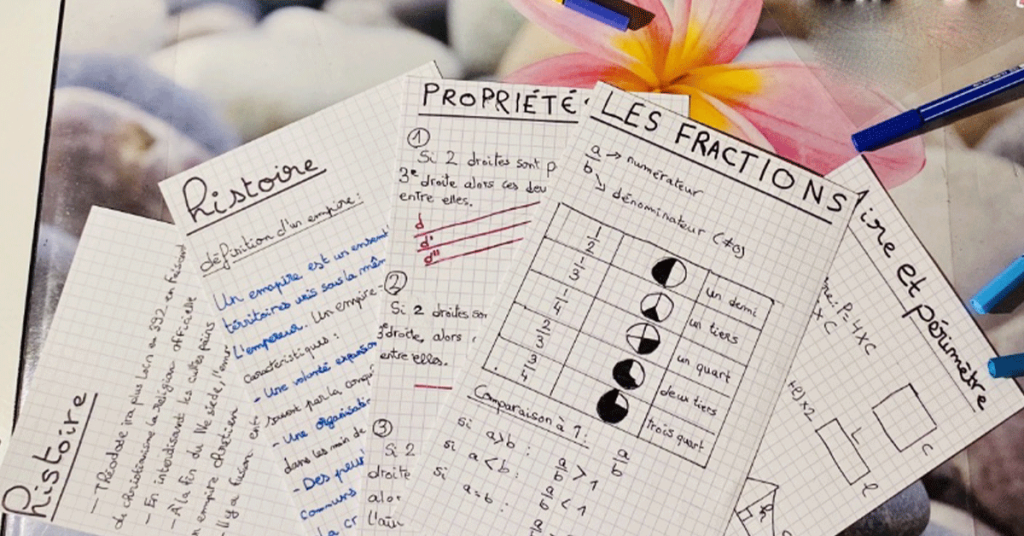 histoire
- Théodose ira plus loin en 392 en faisant
de christianisme la religion officielle
- En interdisant les cultes païens
- À la fin du IVe siècle, l'emp
un empire chrétien
- Il y a fusion ent
histoire
définition d'un empire :
Un empire est un ensem
territoires unis sous la mêm
L'empereur. Un empire
caractéristiques :
- Une volonté expansion
suivent par la conqu
- Une organisati
dans les main de
- Des peupl
communs
la cr
PROPRIÉTÉS
①
Si 2 droites sont p
3e droite alors ces deu
entre elles.
d
d'
d"
②
Si 2 droites sor
3e droite, alors
entre elles.
③
Si 2
droite
alor
l'au
LES FRACTIONS
a/b → numérateur
↘ dénominateur (≠0)
1/2 un demi
1/3 un tiers
1/4 un quart
2/3 deux tiers
3/4 trois quart
Comparaison à 1 :
si a>b : a/b > 1
si a<b : a/b < 1
si a=b : a/b
Aire et périmètre
re : P: 4×C
×C
+P)×2
L
l
C